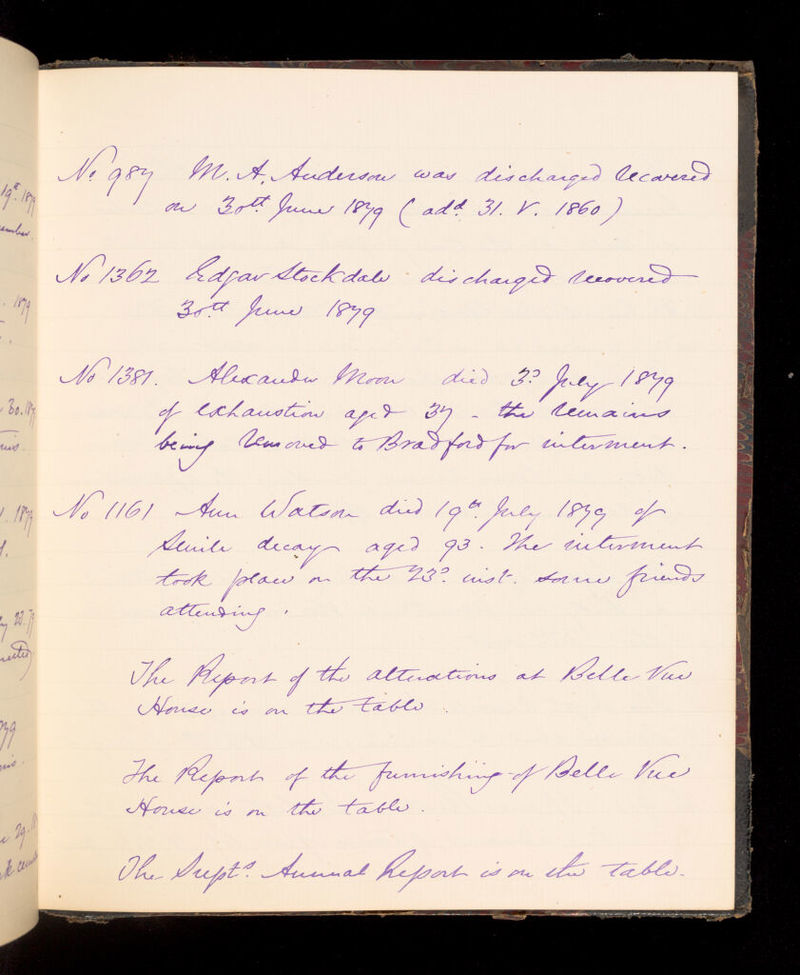 No. 987 M. A. Anderson was discharged recovered
on 30th June 1879 (add. 31. V. 1860)
No 1362 Edgar Stockdale discharged recovered
30th June 1879
No 1381. Alexander Moon died 3d July 1879
of exhaustion aged 37 - the remains
being removed to Bradford for interment.
No 1161 Ann Watson died 19th July 1879 of
Senile decay aged 93. The interment
took place on the 23d inst. some friends
attending.
The Report of the alterations at Belle Vue
House is on the table.
The Report of the furnishing of Belle Vue
House is on the table.
The Supts. Annual Report is on the table.